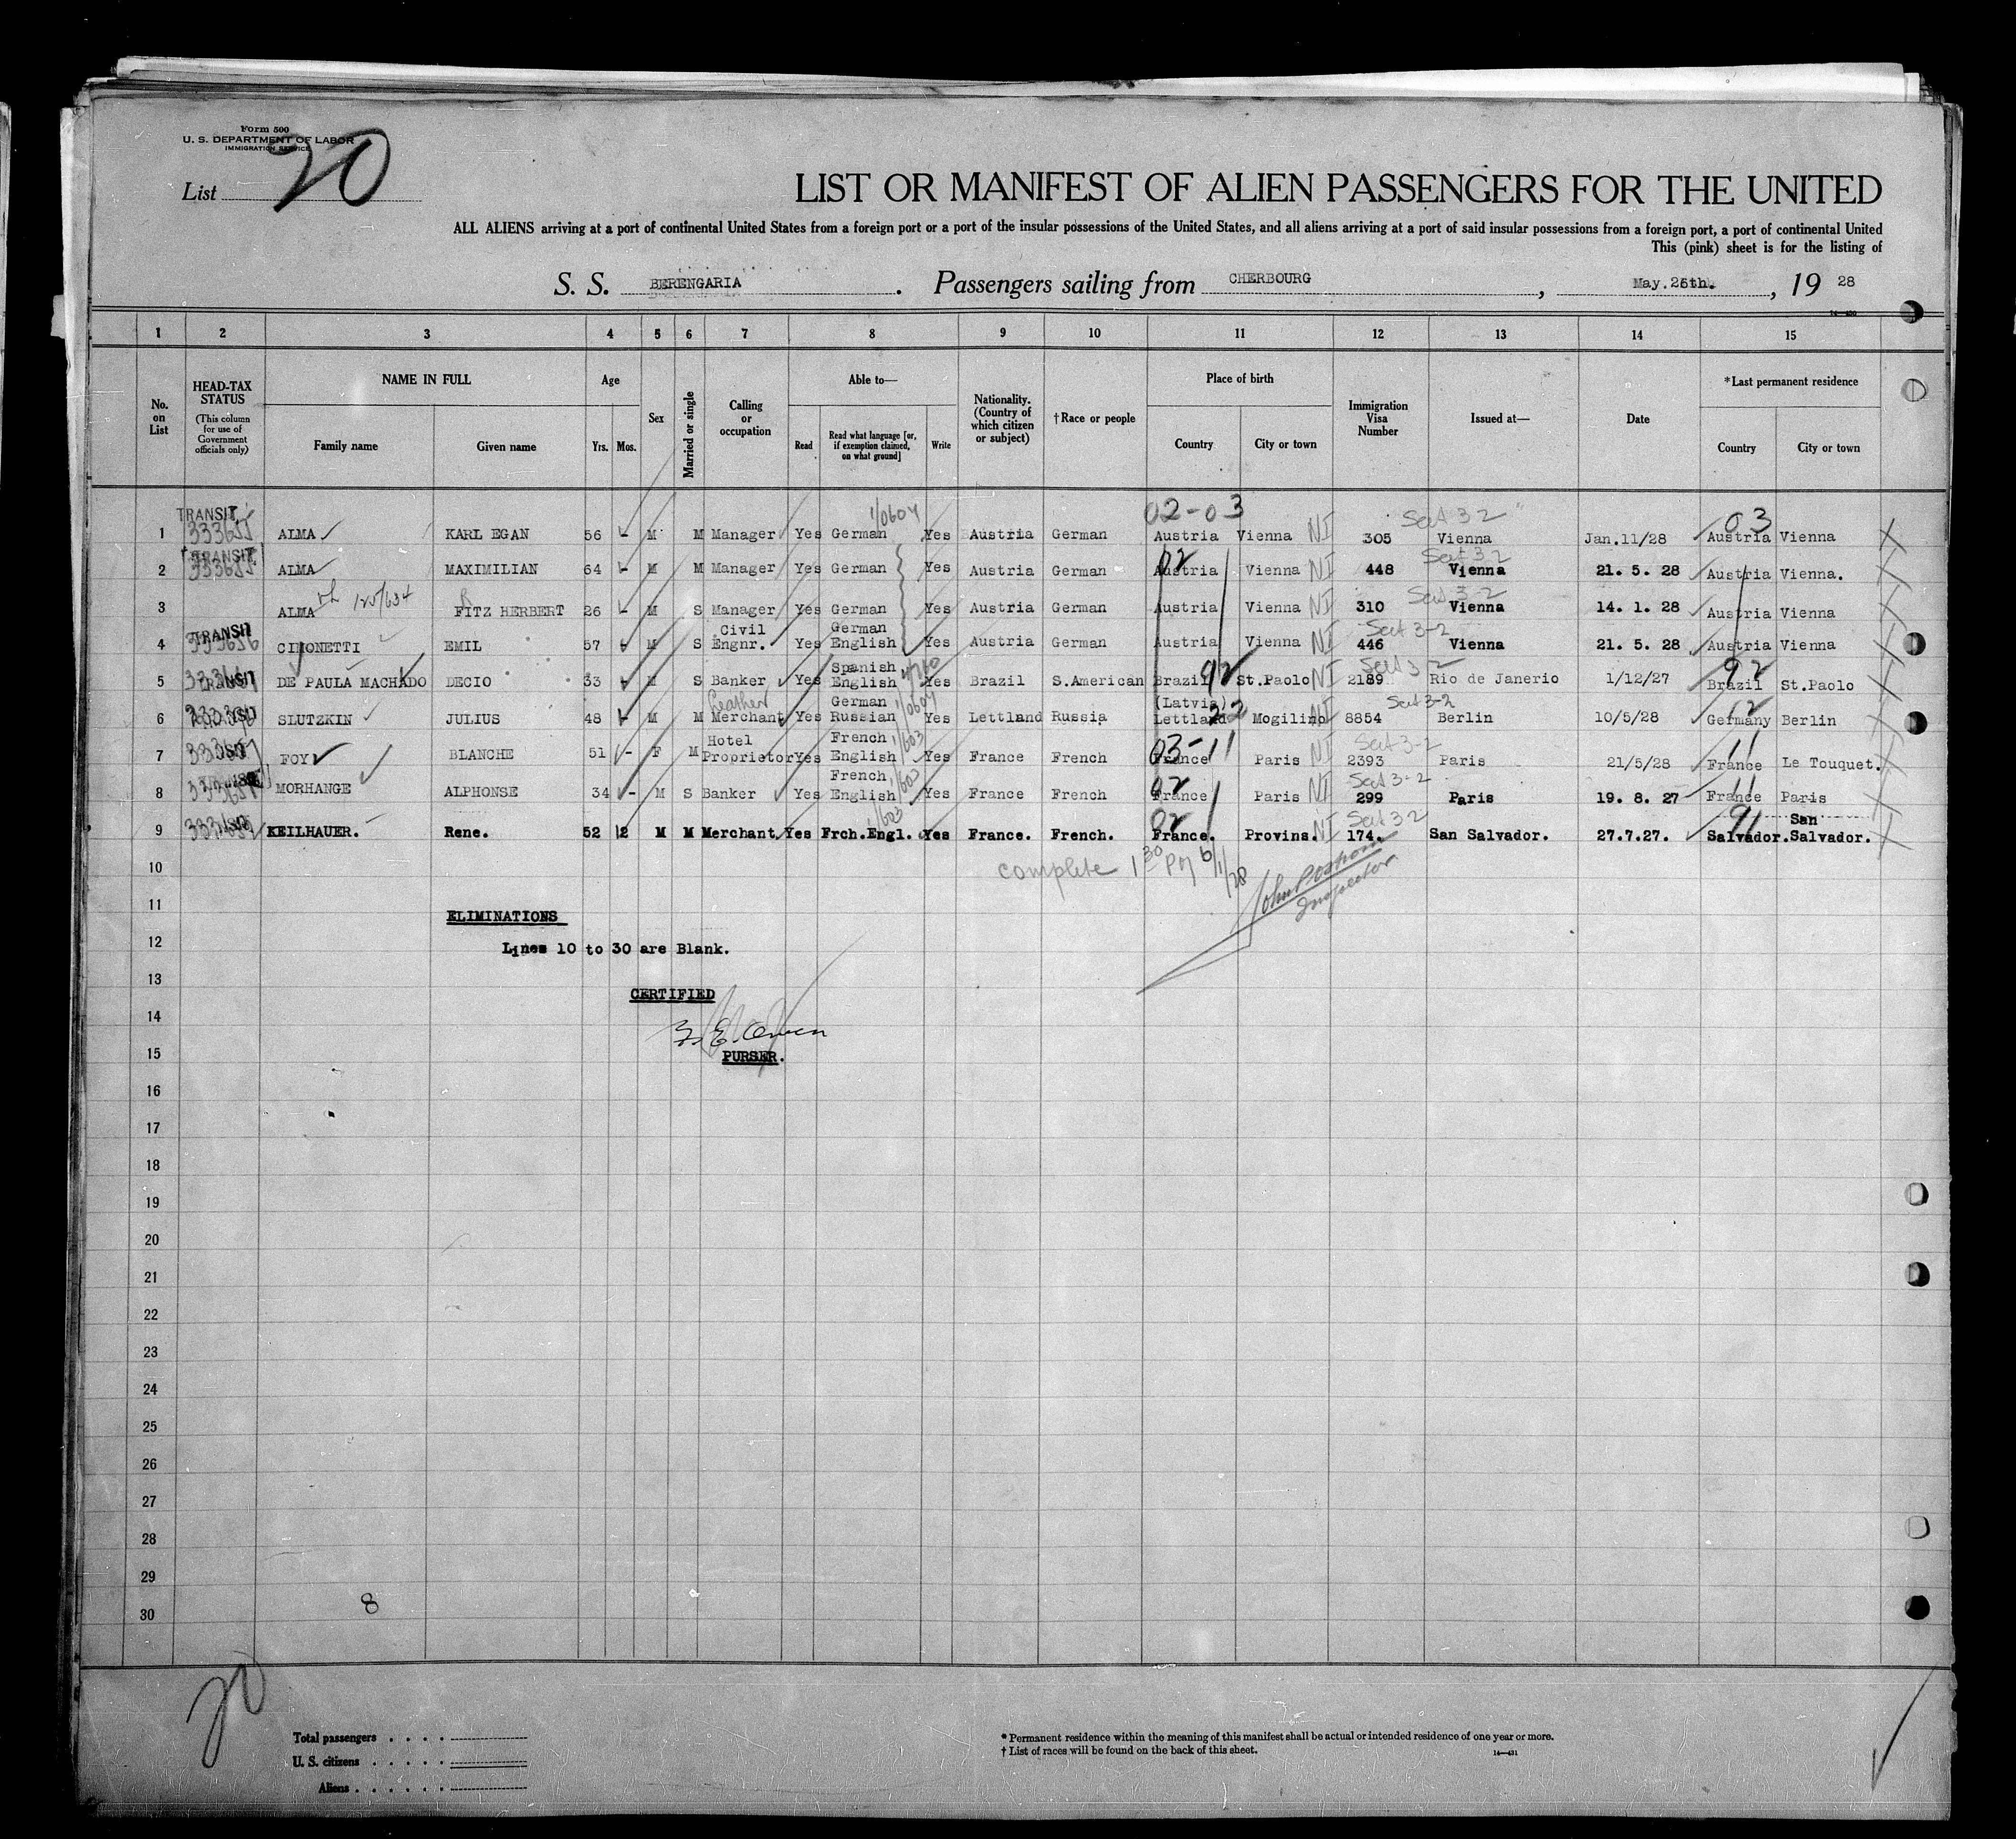 Form 500
U. S. DEPARTMENT OF LABOR
IMMIGRATION SERVICE
List 20
LIST OR MANIFEST OF ALIEN PASSENGERS FOR THE UNITED
ALL ALIENS arriving at a port of continental United States from a foreign port or a port of the insular possessions of the United States, and all aliens arriving at a port of said insular possessions from a foreign port, a port of continental United
This (pink) sheet is for the listing of
S. S. BERENGARIA. Passengers sailing from CHERBOURG, May.25th., 19 28
14—430
1 2 3 4 5 6 7 8 9 10 11 12 13 14 15
No. on List
HEAD-TAX STATUS (This column for use of Government officials only)
NAME IN FULL
Family name Given name
Age
Yrs. Mos.
Sex
Married or single
Calling or occupation
Able to—
Read Read what language [or, if exemption claimed, on what ground] Write
Nationality. (Country of which citizen or subject)
†Race or people
Place of birth
Country City or town
Immigration Visa Number
Issued at—
Date
*Last permanent residence
Country City or town
TRANSIT 1/0604 02-03 Sect 3-2 03
1 333655 ALMA KARL EGAN 56 - M M Manager Yes German Yes Austria German Austria Vienna NI 305 Vienna Jan.11/28 Austria Vienna
TRANSIT 02 Sect 3-2
2 333655 ALMA MAXIMILIAN 64 - M M Manager Yes German Yes Austria German Austria Vienna NI 448 Vienna 21. 5. 28 Austria Vienna.
125/634 Sect 3-2
3 ALMA FITZ HERBERT 26 - M S Manager Yes German Yes Austria German Austria Vienna NI 310 Vienna 14. 1. 28 Austria Vienna
TRANSIT Civil German Sect 3-2
4 333656 CIHONETTI EMIL 57 - M S Engnr. Yes English Yes Austria German Austria Vienna NI 446 Vienna 21. 5. 28 Austria Vienna
Spanish 92 Sect 3-2 92
5 TRANSIT DE PAULA MACHADO DECIO 33 - M S Banker Yes English Yes Brazil S.American Brazil St.Paolo NI 2189 Rio de Janerio 1/12/27 Brazil St.Paolo
Leather German 1/0604 (Latvia) Sect 3-2 12
6 SLUTZKIN JULIUS 48 - M M Merchant Yes Russian Yes Lettland Russia Lettland 22 Mogilino NI 8854 Berlin 10/5/28 Germany Berlin
Hotel French 1/603 03-11 Sect 3-2 11
7 FOY BLANCHE 51 - F M Proprietor Yes English Yes France French France Paris NI 2393 Paris 21/5/28 France Le Touquet.
French 1/603 02 Sect 3-2 11
8 MORHANGE ALPHONSE 34 - M S Banker Yes English Yes France French France Paris NI 299 Paris 19. 8. 27 France Paris
1/603 02 Sect 3-2 91 San
9 KEILHAUER. Rene. 52 2 M M Merchant Yes Frch.Engl. Yes France. French. France. Provins. NI 174. San Salvador. 27.7.27. Salvador. Salvador.
10 complete 1 30 PM 6/1/28
Inspector
11 ELIMINATIONS
12 Lines 10 to 30 are Blank.
13 CERTIFIED
14 E. Owen
15 PURSER.
16
17
18
19
20
21
22
23
24
25
26
27
28
29
30 8
20
Total passengers
U. S. citizens
Aliens
* Permanent residence within the meaning of this manifest shall be actual or intended residence of one year or more.
† List of races will be found on the back of this sheet. 14—431